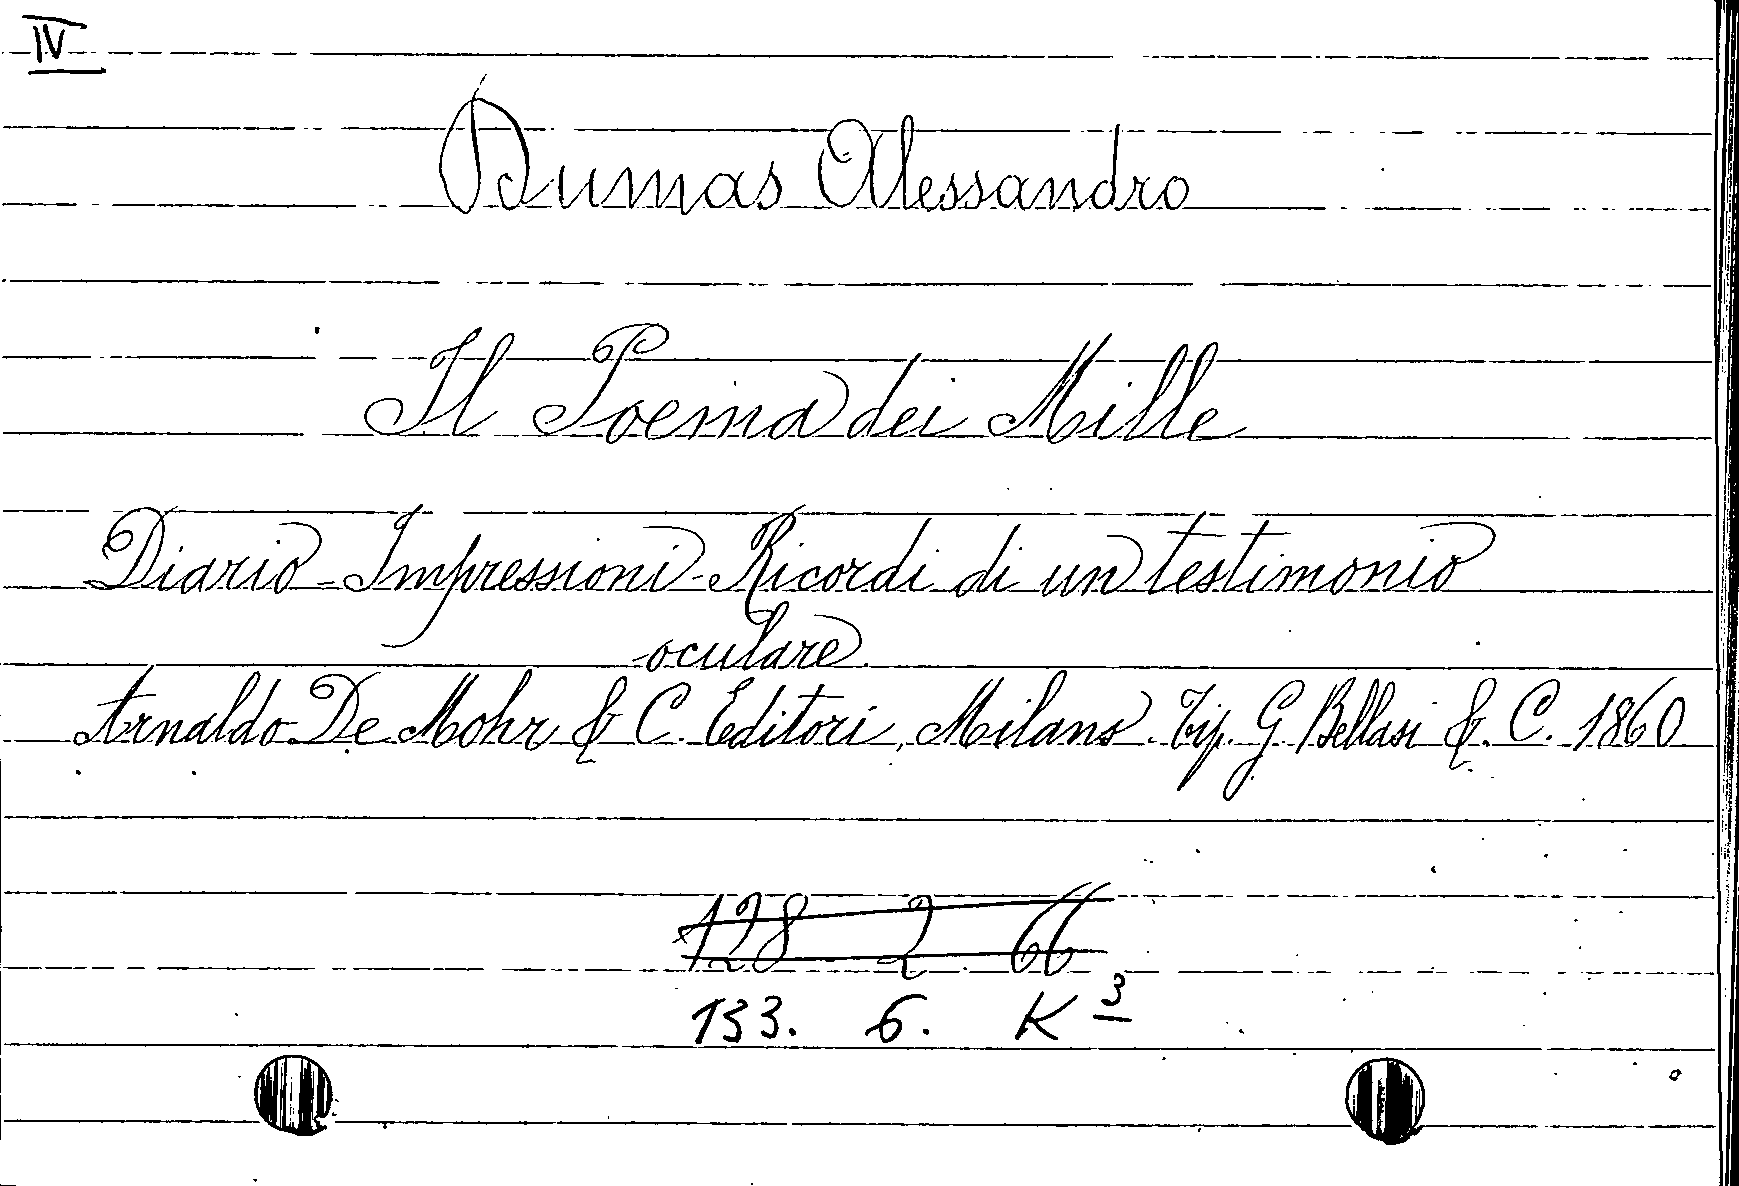 IV
Dumas Alessandro
Il Poema dei Mille
Diario - Impressioni - Ricordi di un testimonio
oculare
Arnaldo De Mohr & C. Editori, Milano. Tip. G. Bellasi & C. 1860
128 2 66
133. 6. K 3